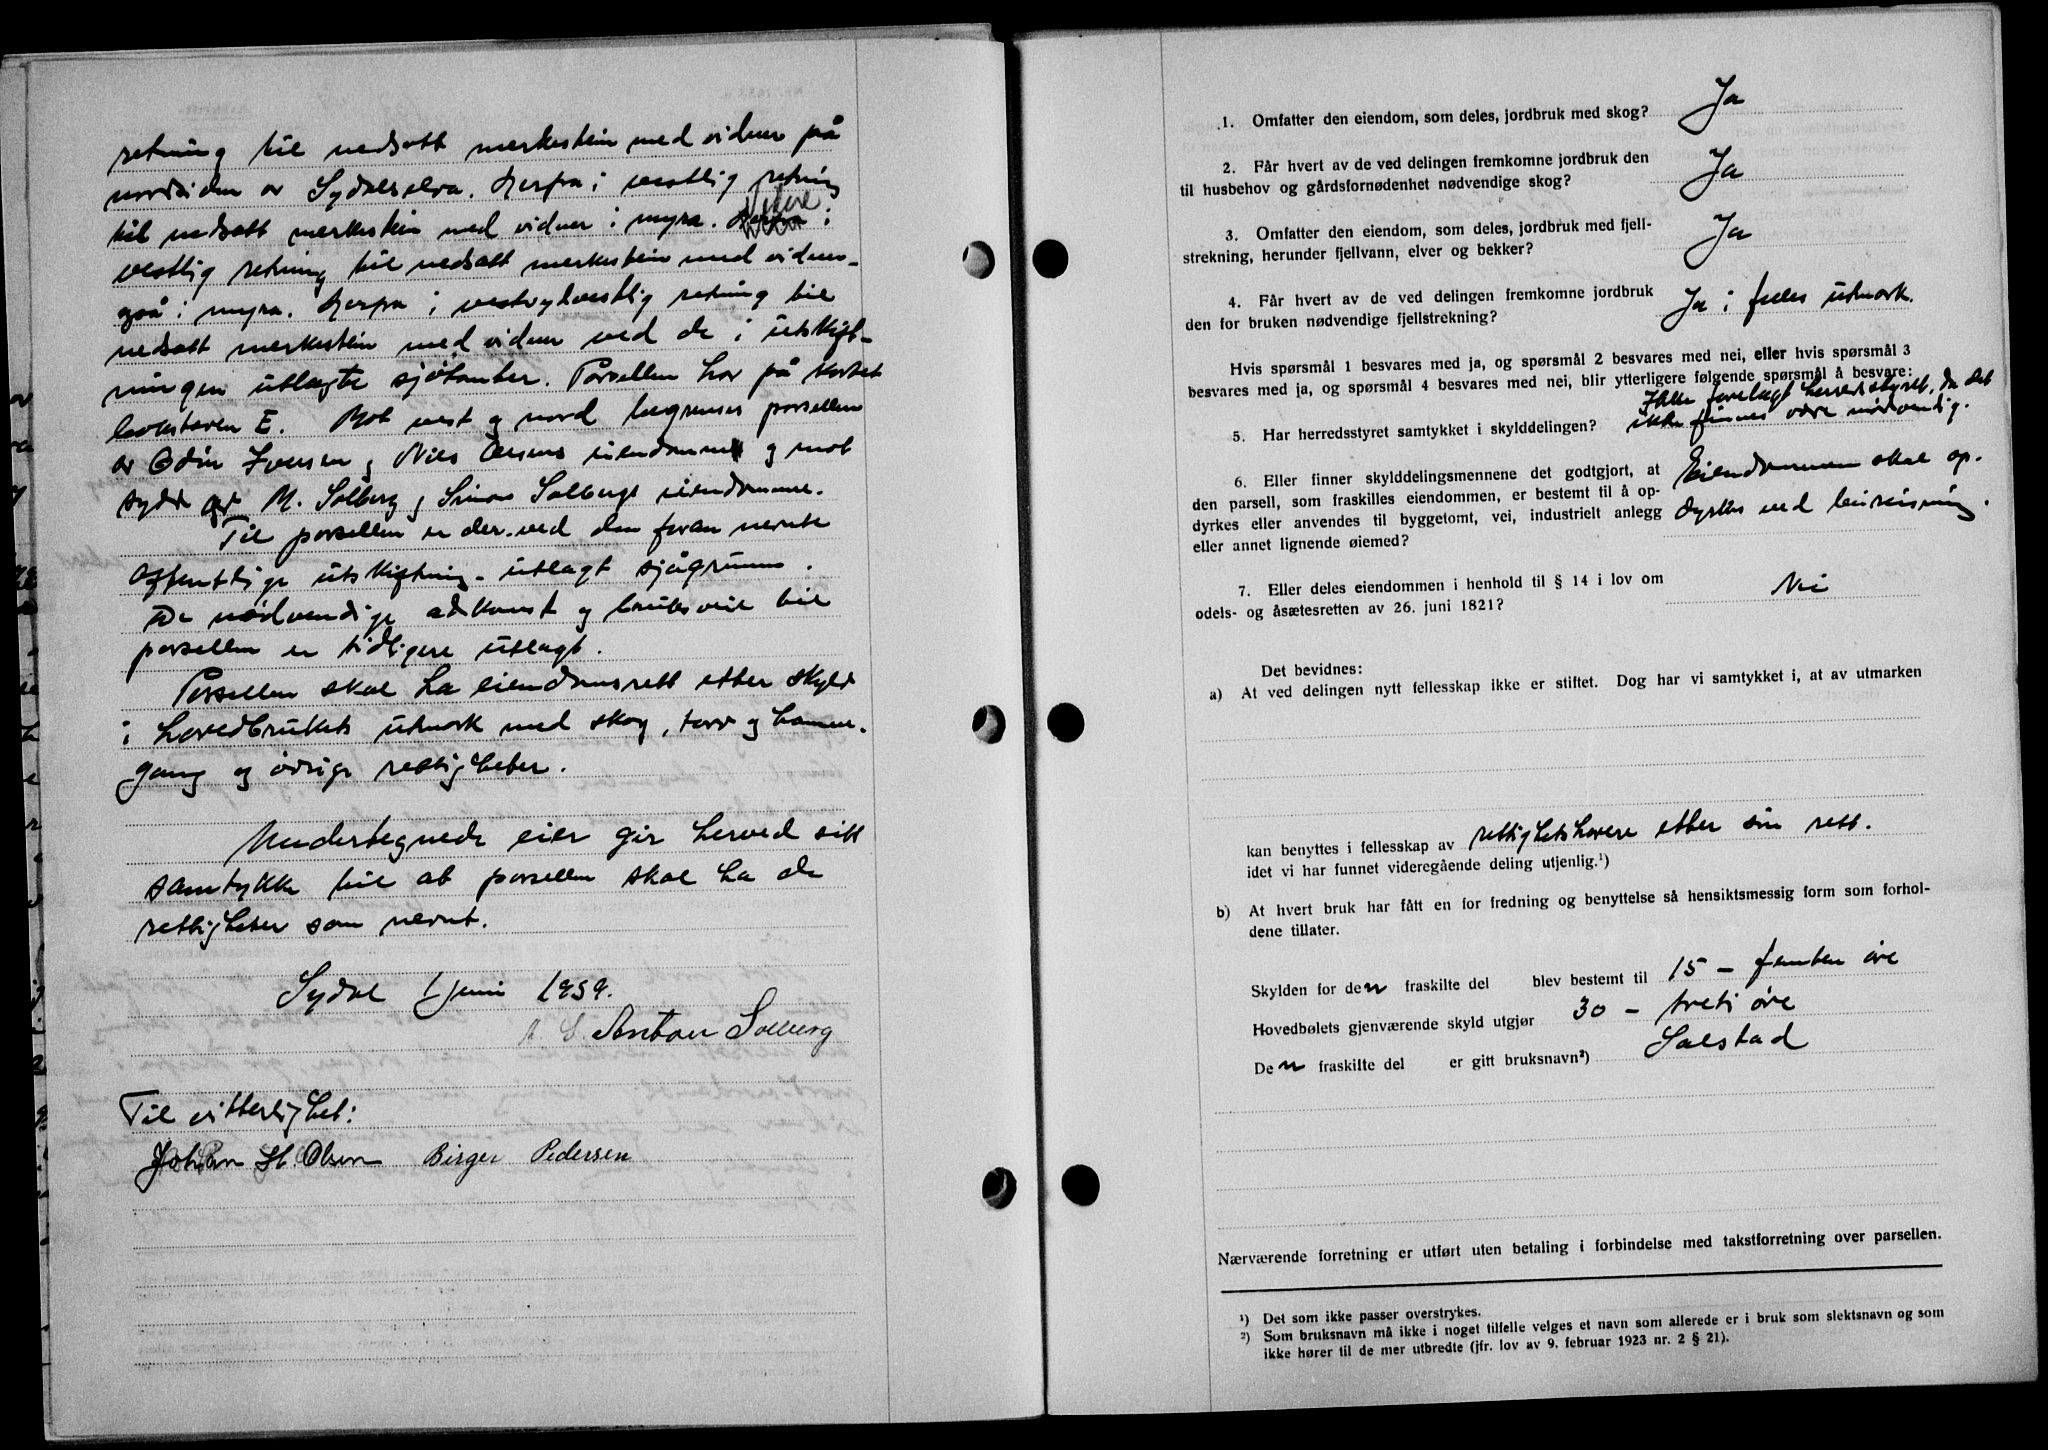 retning til nedsatt merkestein med vidner på
nordsiden av Sydalselva. Herfra i vestlig retning
til nedsatt merkestein med vidner i myra. Videre i
vestlig retning til nedsatt merkestein med vidner
også i myra. Herfra i vestsydvestlig retning til
nedsatt merkestein med vidner ved de i utskift-
ningen utlagte sjøtomter. Parsellen har på kartet
bokstaven E. Mot vest og nord begrenses parsellen
av Odin Iversen og Nils Olsens eiendommer og mot
syd av M. Solberg og Simon Solbergs eiendomme.
Til parsellen er der ved den foran nevnte
offentlige utskiftning - utlagt sjøgrunn.
De nødvendige adkomst og bruksveie til
parsellen er tidligere utlagt.
Parsellen skal ha eiendomsrett etter skyld
i hovedbrukets utmark med skog, torv og havne-
gang og øvrige rettigheter.
Undertegnede eier gir herved sitt
samtykke til at parsellen skal ha de
rettigheter som nevnt.
Sydal 1 juni 1939.
Anton Solberg
Til vitterlighet:
Johan St. Olsen Birger Pedersen
1. Omfatter den eiendom, som deles, jordbruk med skog? Ja
2. Får hvert av de ved delingen fremkomne jordbruk den
til husbehov og gårdsfornødenhet nødvendige skog? Ja
3. Omfatter den eiendom, som deles, jordbruk med fjell-
strekning, herunder fjellvann, elver og bekker? Ja
4. Får hvert av de ved delingen fremkomne jordbruk
den for bruken nødvendige fjellstrekning? Ja i felles utmark.
Hvis spørsmål 1 besvares med ja, og spørsmål 2 besvares med nei, eller hvis spørsmål 3
besvares med ja, og spørsmål 4 besvares med nei, blir ytterligere følgende spørsmål å besvare:
Ikke forelagt herredstyret, da det
5. Har herredsstyret samtykket i skylddelingen? ikke finnes være nødvendig.
6. Eller finner skylddelingsmennene det godtgjort, at
den parsell, som fraskilles eiendommen, er bestemt til å op-
dyrkes eller anvendes til byggetomt, vei, industrielt anlegg
eller annet lignende øiemed?
Eiendommen skal op-
dyrkes ved bureisning.
7. Eller deles eiendommen i henhold til § 14 i lov om
odels- og åsætesretten av 26. juni 1821? Nei
Det bevidnes:
a) At ved delingen nytt fellesskap ikke er stiftet. Dog har vi samtykket i, at av utmarken
kan benyttes i fellesskap av rettighetshavere etter sin rett.
idet vi har funnet videregående deling utjenlig.¹)
b) At hvert bruk har fått en for fredning og benyttelse så hensiktsmessig form som forhol-
dene tillater.
Skylden for den fraskilte del blev bestemt til 15 - femten øre
Hovedbølets gjenværende skyld utgjør 30 - treti øre
Den fraskilte del er gitt bruksnavn²) Solstad
Nærværende forretning er utført uten betaling i forbindelse med takstforretning over parsellen.
¹) Det som ikke passer overstrykes.
²) Som bruksnavn må ikke i noget tilfelle velges et navn som allerede er i bruk som slektsnavn og som
ikke hører til de mer utbredte (jfr. lov av 9. februar 1923 nr. 2 § 21).